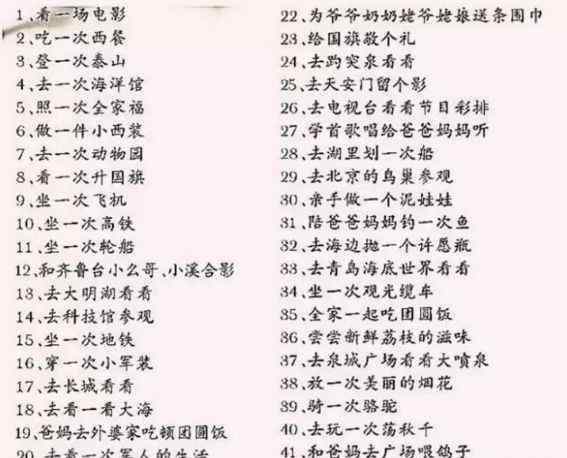 1、看一场电影
2、吃一次西餐
3、登一次泰山
4、去一次海洋馆
5、照一次全家福
6、做一件小西装
7、去一次动物园
8、看一次升国旗
9、坐一次飞机
10、坐一次高铁
11、坐一次轮船
12、和齐鲁台小么哥、小溪合影
13、去大明湖看看
14、去科技馆参观
15、坐一次地铁
16、穿一次小军装
17、去长城看看
18、去看一看大海
19、爸妈去外婆家吃顿团圆饭
20、去看一次军人的生活
22、为爷爷奶奶姥爷姥娘送条围巾
23、给国旗敬个礼
24、去趵突泉看看
25、去天安门留个影
26、去电视台看看节目彩排
27、学首歌唱给爸爸妈妈听
28、去湖里划一次船
29、去北京的鸟巢参观
30、亲手做一个泥娃娃
31、陪爸爸妈妈钓一次鱼
32、去海边抛一个许愿瓶
33、去青岛海底世界看看
34、坐一次观光缆车
35、全家一起吃团圆饭
36、尝尝新鲜荔枝的滋味
37、去泉城广场看看大喷泉
38、放一次美丽的烟花
39、骑一次骆驼
40、去玩一次荡秋千
41、和爸妈去广场喂鸽子